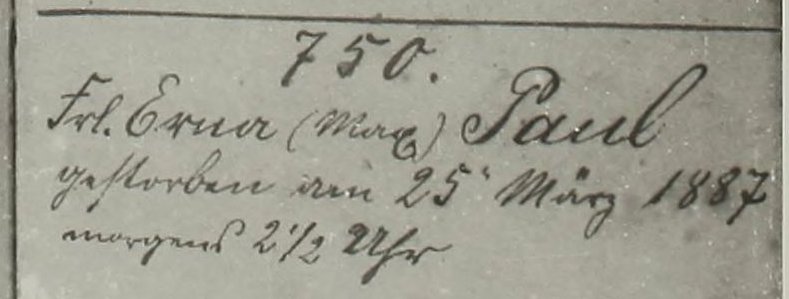 750.
Frl. Erna (Max) Paul
gestorben am 25' März 1887
morgens 2 1/2 Uhr